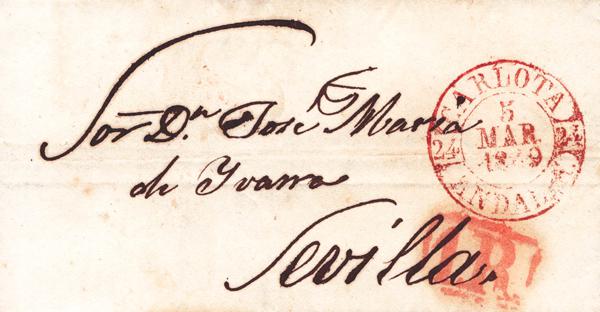 Sor Dn José María
de Ybarra
Sevilla.
CARLOTA
5
MAR
1849
24 24
ANDAL
1R